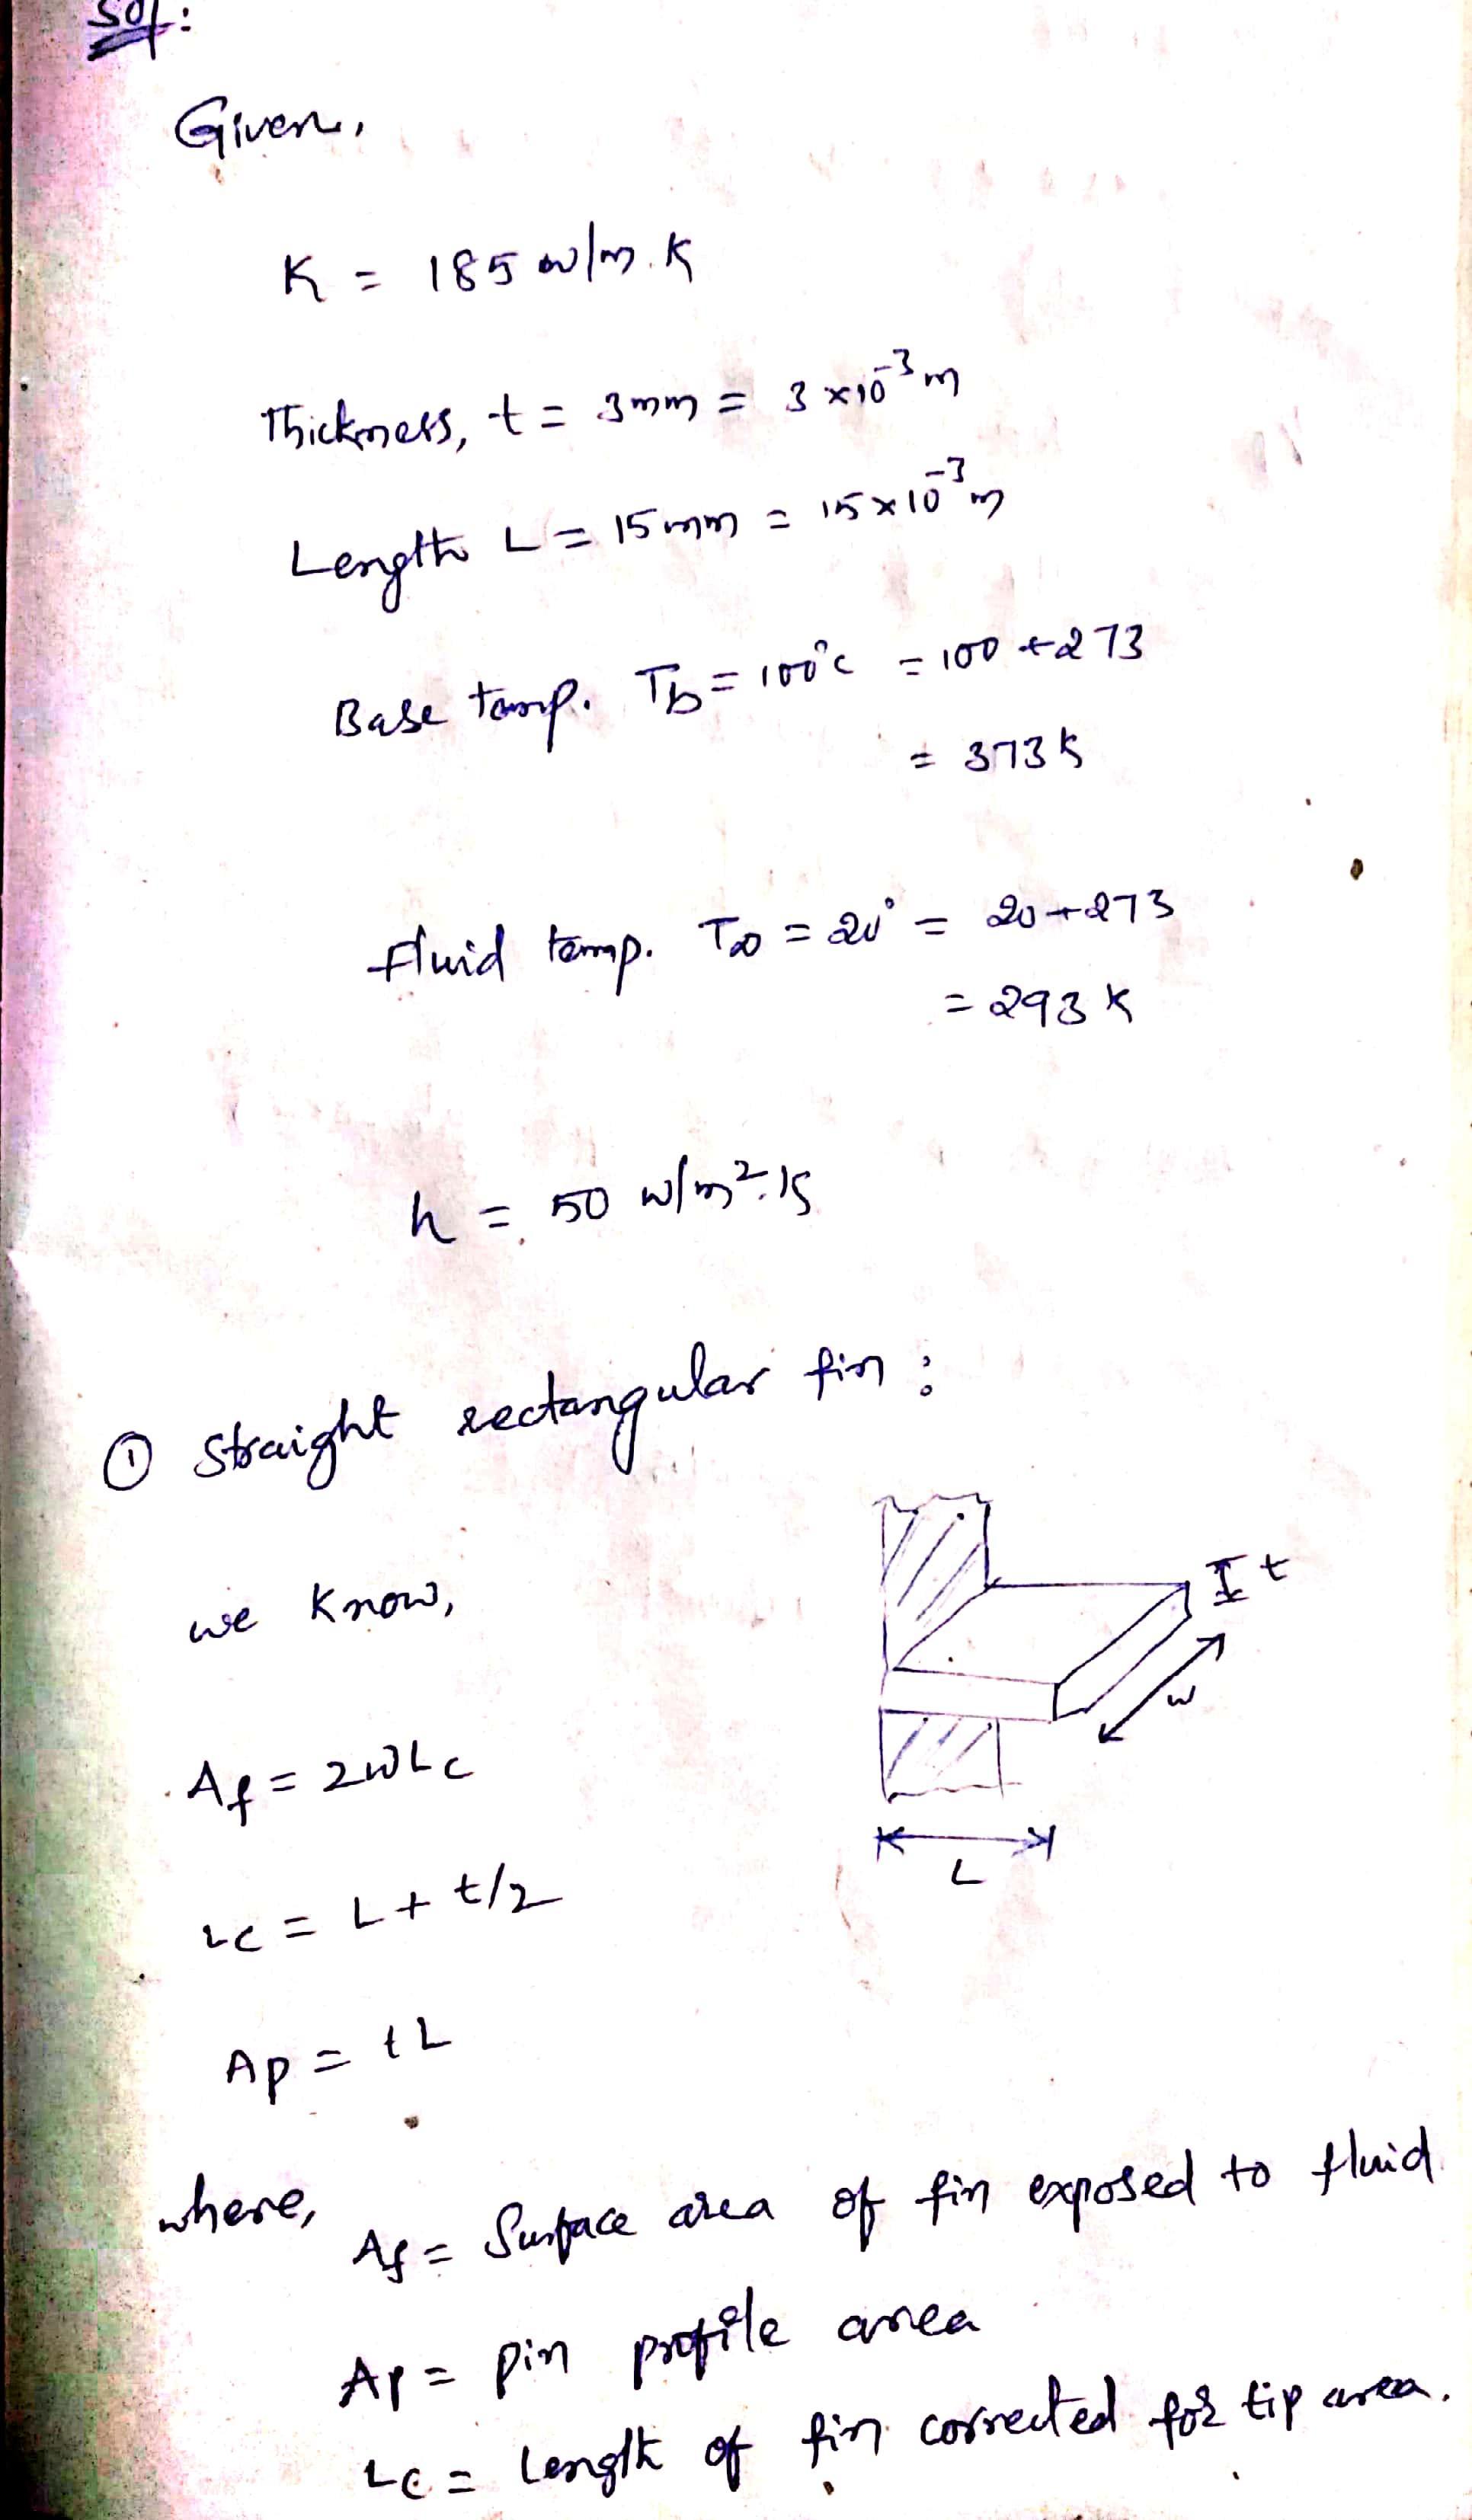 Sol:
Given,
K = 185 w/m.K
Thickness, t = 3mm = 3 × 10⁻³ m
Length L = 15mm = 15 × 10⁻³ m
Base temp. Tb = 100°c = 100 + 273
= 373 K
fluid temp. T∞ = 20° = 20 + 273
= 293 K
h = 50 w/m².K
① Straight rectangular fin :
we know,
t
w
Af = 2wLc
L
Lc = L + t/2
Ap = tL
where,
Af = Surface area of fin exposed to fluid
Ap = pin profile area
Lc = Length of fin corrected for tip area.